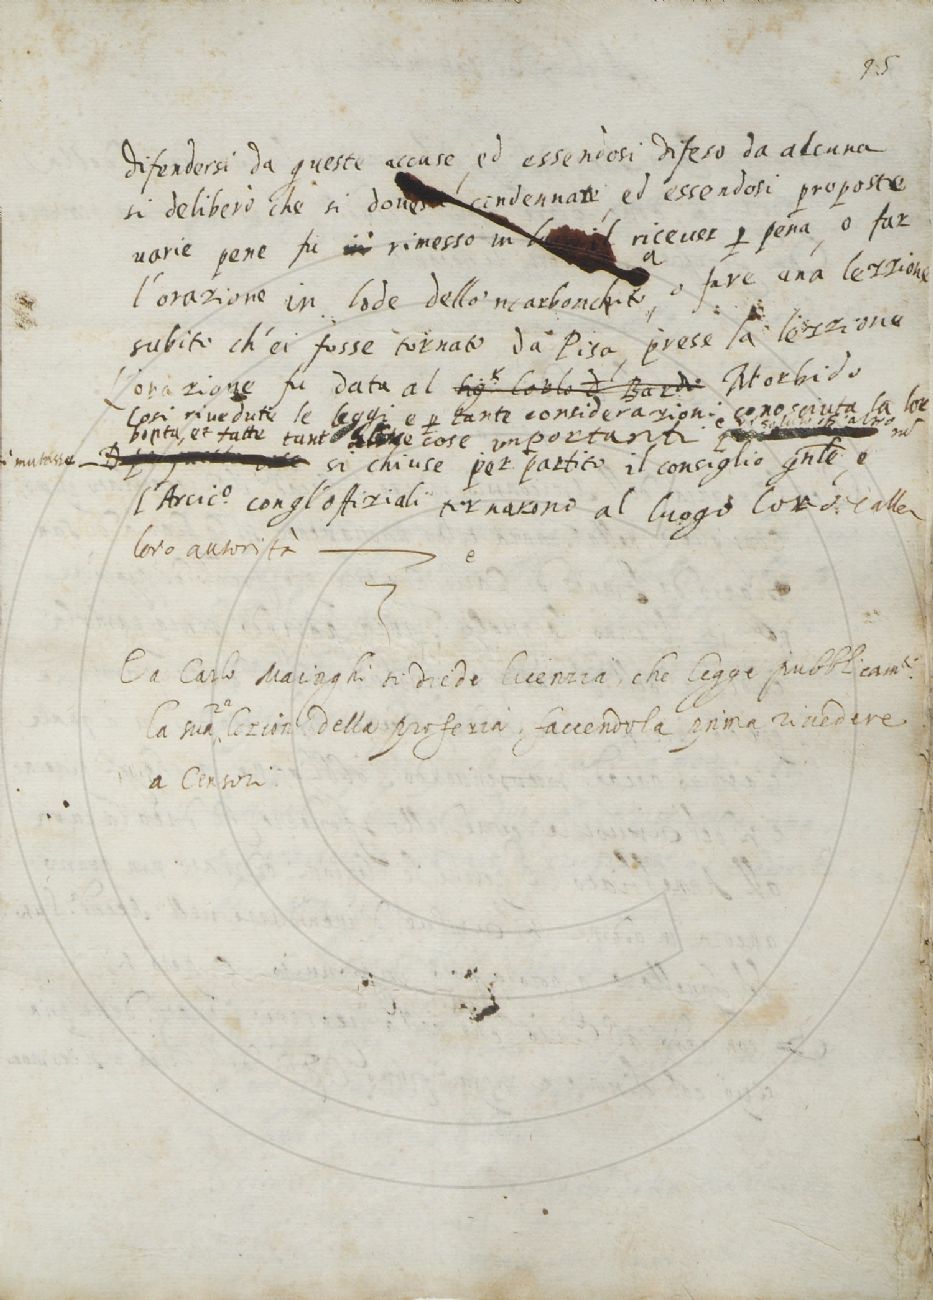 95
difendersi da queste accuse, ed essendosi difeso da alcuna
si deliberò che si doueua condennare, ed essendosi proposte
uarie pene fu rimesso in lui il riceuer p pena, o far
l'orazione in lode dello 'ncarbonchito, o fare una lezzione
subito ch'ei fosse tornato da Pisa, prese la lezzione
L'orazione fu data al sigr Carlo d Bardi Morbido
Cosi riuedute le leggi e p tante considerazioni conosciuta la lor
bontà, et fatte tant' altre cose importanti e risoluto ch' altro nō
si mutasse si chiuse per partito il consiglio gnle, e
l'Arcico con gl'offiziali tornarono al luogo loro e alla
loro autorità
A Carlo Macinghi si diede licenzia, che legga pubblicamte
la sua lezione della profezia, faccendola prima riuedere
a Censori